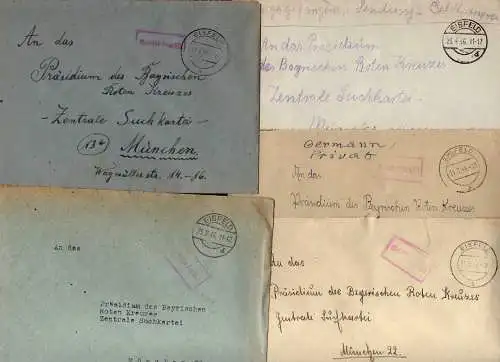 An das
Präsidium des Bayrischen
Roten Kreuzes
- Zentrale Suchkartei -
(13b)
München
Wagmüllerstr. 14-16.
EISFELD
EISFELD
25.4.46.11-12
d
An das Präsidium
des Bayrischen Roten Kreuzes
Zentrale Suchkartei
Germann
Privat
EISFELD
An das
Präsidium des Bayrischen Roten Kreuzes
EISFELD
d
An das
Präsidium des Bayrischen
Roten Kreuzes
Zentrale Suchkartei
EISFELD
An das
Präsidium des Bayerischen Roten Kreuzes
Zentrale Suchkartei
München 22.